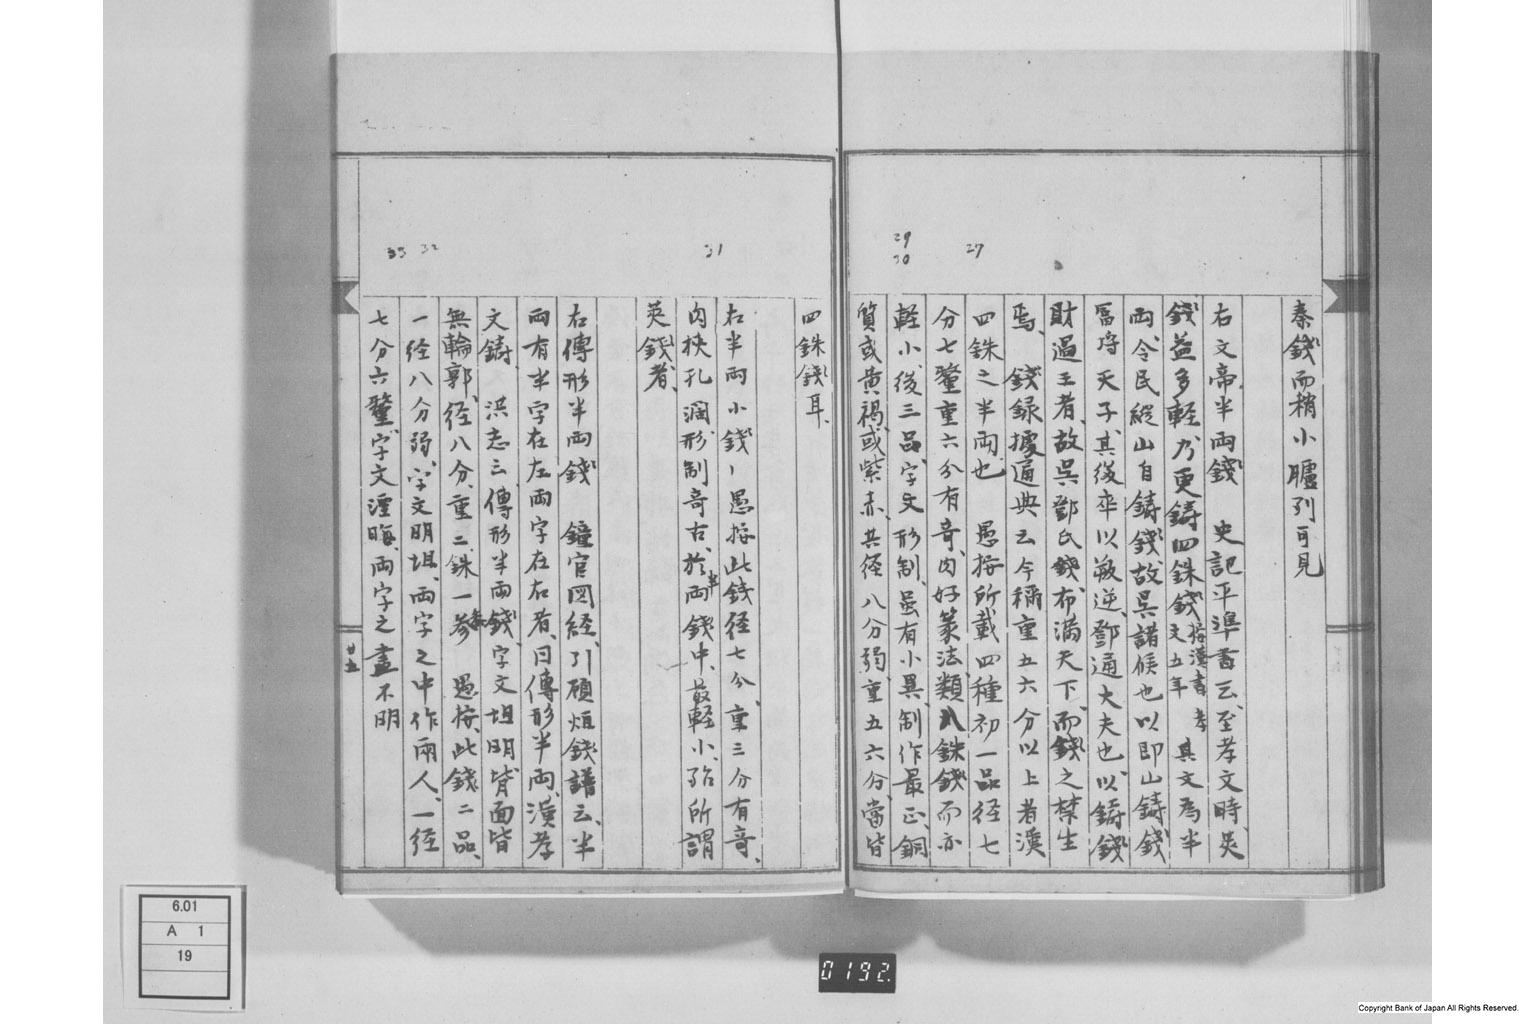 秦錢而稍小臚列可見
右文帝半両錢　史記平準書云、至孝文時、莢
錢益多軽乃更鋳四銖錢按漢書孝文五年其文為半
両、令民縦山自鋳錢、故呉諸侯也以即山鋳錢
富埒天子、其後卒以叛逆、鄧通大夫也、以鋳錢
財過王者、故呉鄧氏錢布満天下、而錢之禁生
焉、　錢録據通典云今稱重五六分以上者漢
四銖之半両也　愚按所載四種初一品径七
分七釐重六分有奇、肉好篆法、類八銖錢而亦
軽小後三品、字文形制、虽有小異、制作最正、銅
質或黄褐、或紫赤、共径八分弱、重五六分、當皆
四銖錢耳、
右半両小錢　愚按此錢径七分、重三分有奇、
肉挟孔濶、形制奇古、於半両錢中、最軽小、殆所謂
莢錢者、
右傳形半両錢　鐘官図経、引顧烜錢譜云、半
両有半字在左両字在右者、曰傳形半両、漢孝
文鋳、　洪志云傳形半両錢、字文坦明、背面皆
無輪郭、径八分、重二銖一参　愚按、此錢二品、
一径八分弱、字文明坦、両字之中作兩人、一径
七分六釐、字文湮晦、両字之畫不明
廿五
27
29
30
31
32
33
6.01
A 1
19
0192
Copyright Bank of Japan All Rights Reserved.